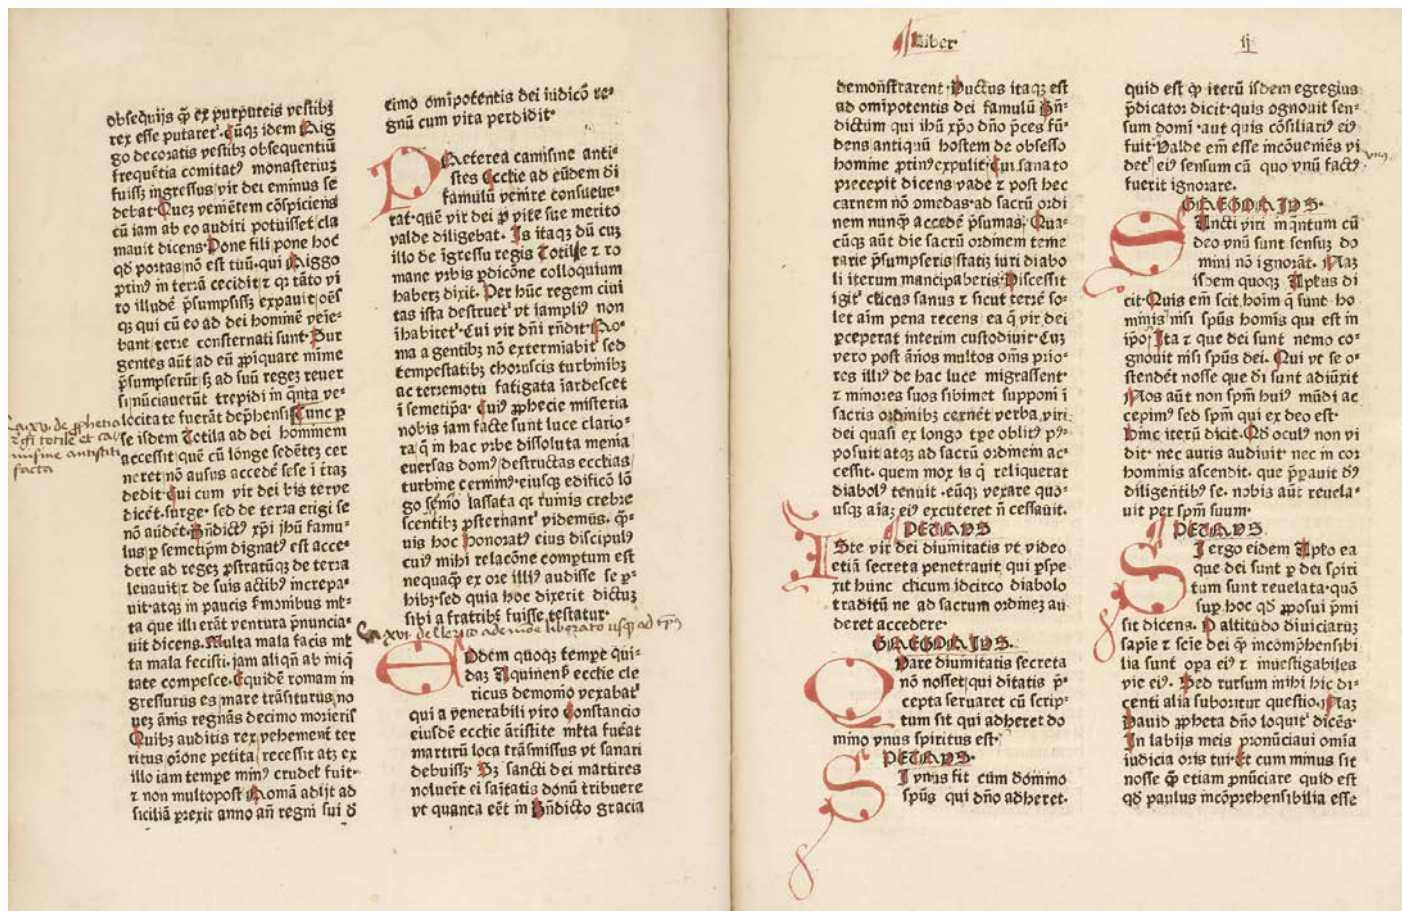 obsequijs qꝫ ex purpureis vestibꝫ
rex esse putaret᷑. Cūqꝫ idem Rig
go decoratis vestibꝫ obsequentiū
frequētia comitatꝰ monasteriuꝫ
fuissꝫ ingressus vir dei eminus se
debat. Queꝫ veniētem cōspiciens
cū iam ab eo audiri potuisset cla
mauit dicens. Pone fili pone hoc
qd̄ portas nō est tuū. qui Riggo
ꝓtinꝰ in terrā cecidit ⁊ qꝛ tāto vi
ro illudē p̄sumpsissꝫ expauit oēs
qꝫ qui cū eo ad dei hominē veīe-
bant terre consternati sunt. Sur
gentes aūt ad eū ꝓpiquare mīme
p̄sumpserūt sꝫ ad suū regeꝫ reuer
si nūciauerūt trepidi in q̄nta ve-
locitate fuerāt dep̄hensi. Tunc ꝑ
se isdem Totila ad dei hominem
accessit quē cū longe sedētem cer
neret nō ausus accedē sese ī trā
dedit. Cui cum vir dei bis terve
dicēt. surge. sed de terra erigi se
nō audēt. Bn̄dictꝰ xp̄i jhū famu-
lus ꝑ semetip̄m dignatꝰ est acce-
dere ad regeꝫ ꝓstratūqꝫ de terra
leuauit ⁊ de suis actibꝰ increpa-
uit. atqꝫ in paucis ẜmonibus mt-
ta que illi erāt ventura p̄nuncia-
uit dicens. Multa mala facis mt̄
ta mala fecisti. jam aliqn̄ ab iniq̄
tate compesce. Equidē romam in
gressurus es mare trāsiturus no
ueꝫ ānis regnās decimo morieris
Quibꝫ auditis rex vehement ter
ritus orōne petita recessit atꝫ ex
illo iam tempe minꝰ crudel fuit.
⁊ non multopost Romā adijt ad
siciliā ꝑrexit anno aūt regni sui d̄
Ca. xv. de ꝓphetia
totile et ca
nusine antistiti
facta
cimo omīpotentis dei iudicō re-
gnū cum vita perdidit.
PReterea camisine anti-
stes Ecctie ad eūdem d̄i
famulū venīre consueue-
rat. quē vir dei ꝓ vite sue merito
valde diligebat. Is itaqꝫ dū cuꝫ
illo de īgressu regis Totille ⁊ ro
mane vrbis ꝑdicōne colloquium
haberꝫ dixit. Per hūc regem ciui
tas ista destruet᷑ vt iampliꝰ non
īhabitet᷑. Cui vir dn̄i rn̄dit. Ro-
ma a gentibꝫ nō extermīabit᷑ sed
tempestatibꝫ choruscis turbinibꝫ
ac terremotu fatigata īardescet
ī semetip̄a. Cuiꝰ ꝓphecie misteria
nobis iam facte sunt luce clario-
ra q̄ in hac vrbe dissoluta menia
euersas domꝰ destructas ecctias
turbine cernimꝰ. eiusqꝫ edificō lō
go senio lassata qꝛ ruinis crebre
scentibꝫ ꝓsternant᷑ videmus. q̄ꝫ-
uis hoc honoratꝰ eius discipulꝰ
cuiꝰ mihi relacōne comptum est
nequaqꝫ ex ore illiꝰ audisse se ꝑ-
hibꝫ. sed quia hoc dixerit dictuꝫ
sibi a fratribꝫ fuisse testatur.
Ca. xvi. de clerico a demōe liberato usqꝫ ad tp̄s
EOdem quoqꝫ tempe qui-
daꝫ Aquinens ecctie cle
ricus demonio vexabat᷑
qui a venerabili viro Constancio
eiusdē ecctie ātistite mlta fuēat
martirū loca trāsmissus vt sanari
debuissꝫ. Sꝫ sancti dei martires
noluerīt ei saītatis donū tribuere
vt quanta eēt in Bn̄dicto gracia
Liber. ij
demonstrarent. Ductus itaqꝫ est
ad omīpotentis dei famulū Bn̄-
dictum qui ihū xp̄o dn̄o p̄ces fū-
dens antiquū hostem de obsesso
homine ꝓtinꝰ expulit. Cui sanato
precepit dicens vade ⁊ post hec
carnem nō omedas. ad sacrū ordi
nem nunqꝫ accedē p̄sumas. Qua-
cūqꝫ aūt die sacrū ordinem teme
rarie p̄sumpseris statiꝫ iuri diabo
li iterum mancipaberis. Discessit
igit᷑ clicus sanus ⁊ sicut terrē so-
let aīm pena recens ea q̄ vir dei
p̄ceperat interim custodiuit. Cuꝫ
vero post ānos multos om̄s prio-
res illiꝰ de hac luce migrassent.
⁊ minores suos sibimet supponi ī
sacris ordinibꝫ cernēt verba viri
dei quasi ex longo tpe oblitꝰ pꝰ-
posuit atqꝫ ad sacrū ordinem ac-
cessit. quem mox is q̄ reliquerat
diabolꝰ tenuit. eūqꝫ vexare quo-
usqꝫ aīaꝫ eiꝰ excuteret n̄ cessauit.
PETRVS
ISte vir dei diuinitatis vt video
etiā secreta penetrauit qui ꝑspe
xit hunc clicum idcirco diabolo
traditū ne ad sacrum ordineꝫ au
deret accedere.
GREGORIVS.
QVare diuinitatis secreta
nō nosset qui ditatis p̄-
cepta seruaret cū scrip-
tum sit qui adheret do
mino vnus spiritus est.
PETRVS.
SI vnus fit cum domino
spūs qui dn̄o adheret.
quid est qꝫ iterū isdem egregius
p̄dicator dicit. quis ognouit sen-
sum domī. aut quis cōsiliariꝰ eiꝰ
fuit. Valde em̄ esse incōueniēs vi
det᷑ eiꝰ sensum cū quo vnū factꝰ
fuerit ignorare.
GREGORIVS.
SAncti viri inqntum cū
deo vnū sunt sensuꝫ do
mini nō ignorāt. Naꝫ
isdem quoqꝫ Aptus di
cit. Quis em̄ scit hoīm q̄ sunt ho
minis nisi spūs homīs qui est in
ip̄o. Ita ⁊ que dei sunt nemo co-
gnouit nisi spūs dei. Qui vt se o-
stendēt nosse que d̄i sunt adiūxit
Nos aūt non spm̄ huiꝰ mūdi ac
cepimꝰ sed spm̄ qui ex deo est.
hinc iterū dicit. Qd̄ oculꝰ non vi
dit. nec auris audiuit. nec in cor
hominis ascendit. que p̄parauit dꝰ
diligentibꝰ se. nobis aūt reuela-
uit per spm̄ suum.
PETRVS
SI ergo eidem Apto ea
que dei sunt ꝑ dei spiri
tum sunt reuelata. quō
suꝑ hoc qd̄ ꝓposui p̄mi
sit dicens. O altitudo diuiciaruꝫ
sapīe ⁊ scīe dei qꝫ incomp̄hensibi
lia sunt opa eiꝰ ⁊ inuestigabiles
vie eiꝰ. Sed rursum mihi hic di-
centi alia suboritur questio. Naꝫ
Dauid ꝓpheta dn̄o loquit᷑ dicēs.
In labijs meis pronūciaui omīa
iudicia oris tui. Et cum minus sit
nosse qꝫ etiam ꝓnūciare quid est
qd̄ paulus incōprehensibilia esse